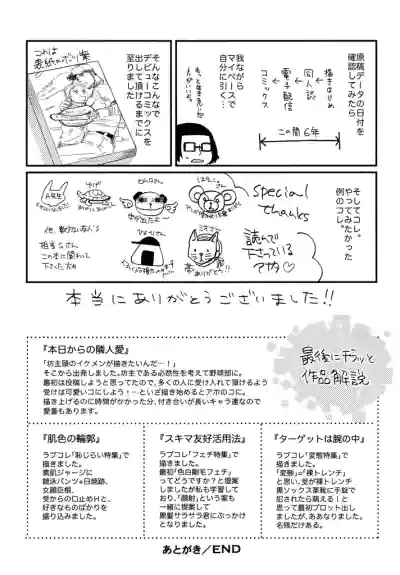 原稿データの日付を
確認してみたら
描きはじめ
同人誌
電子配信
コミックス
この間6年
我ながら
マイペースで
自分に引く…
もっと生き急い
だ方がいいぞ。
そんなこんなで
デビューコミックスを
出して頂けるまでに
至りました
これは
表紙のボツ案
そしてコレ。
やってみたかった
例のコレ。
special
thanks
読んで
下さっている
アナタ♡
A先生
他、数々の友人s
担当Sさん
この本に関わって
下さった方々
本当にありがとうございました!!
最後にチラッと
作品解説
『本日からの隣人愛』
「坊主頭のイケメンが描きたいんだ…!」
そこから出発しました。坊主である必然性を考えて野球部に。
最初は投稿しようと思ってたので、多くの人に受け入れて頂けるよう
受けは可愛いコにしよう!…といざ描き始めるとアホのコに。
描き上げるのに時間がかかった分、付き合いが長いキャラ達なので
愛着もあります。
『肌色の輪郭』
ラブコレ「恥じらい特集」で
描きました。
素肌ジャージに
競泳パンツ+日焼跡、
女顔巨根、
受からの口止めHと、
好きなものばかりを
盛り込みました。
『スキマ友好活用法』
ラブコレ「フェチ特集」で
描きました。
最初「色白剛毛フェチ」
ってどうですか?と提案
しましたが私も学習して
おり、「顔射」という案も
一緒に提案して
黒髪サラサラ君にぶっかけ
となりました。
『ターゲットは腕の中』
ラブコレ「変態特集」で
描きました。
「変態」=「裸トレンチ」
と思い、受が裸トレンチ
黒ソックス革靴に手錠で
犯されたら萌える!と
思って最初プロット出し
ましたが、ああなりました。
名残だけある。
あとがき/END